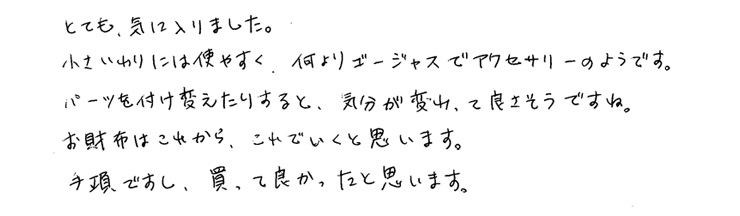 とても、気に入りました。
小さいわりには使やすく、何よりゴージャスでアクセサリーのようです。
パーツを付け変えたりすると、気分が変わって良さそうですね。
お財布はこれから、これでいくと思います。
手頃ですし、買って良かったと思います。